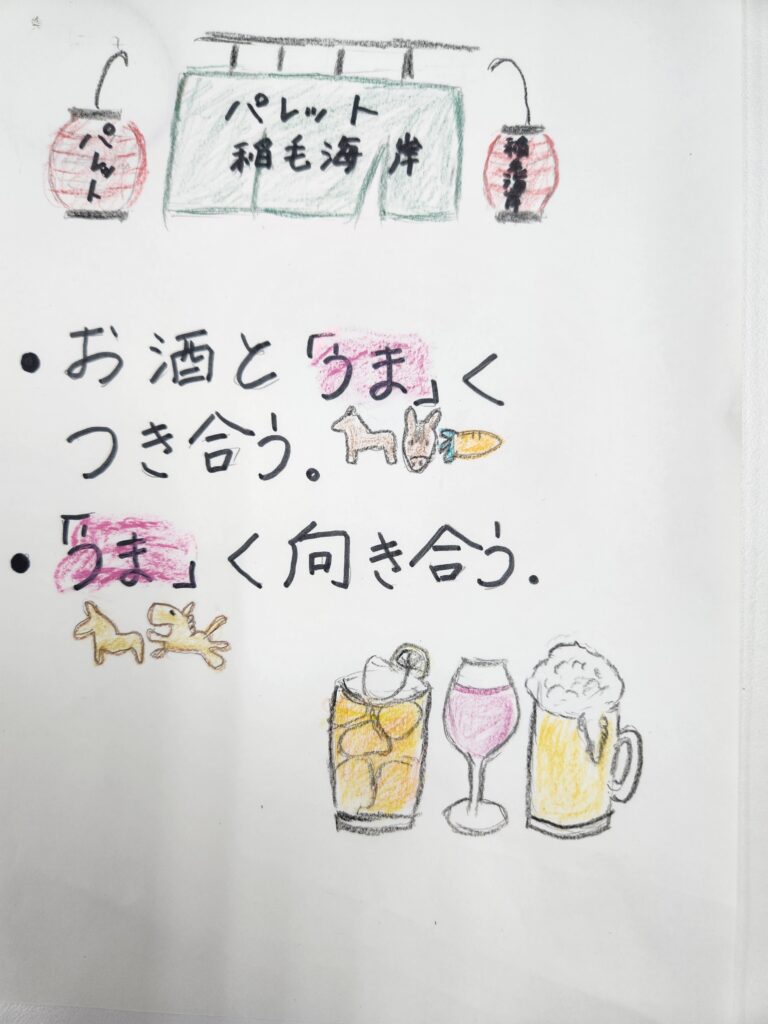 パレット
稲毛海岸
パレット
稲毛海岸
・お酒と「うま」く
つき合う.
・「うま」く向き合う.